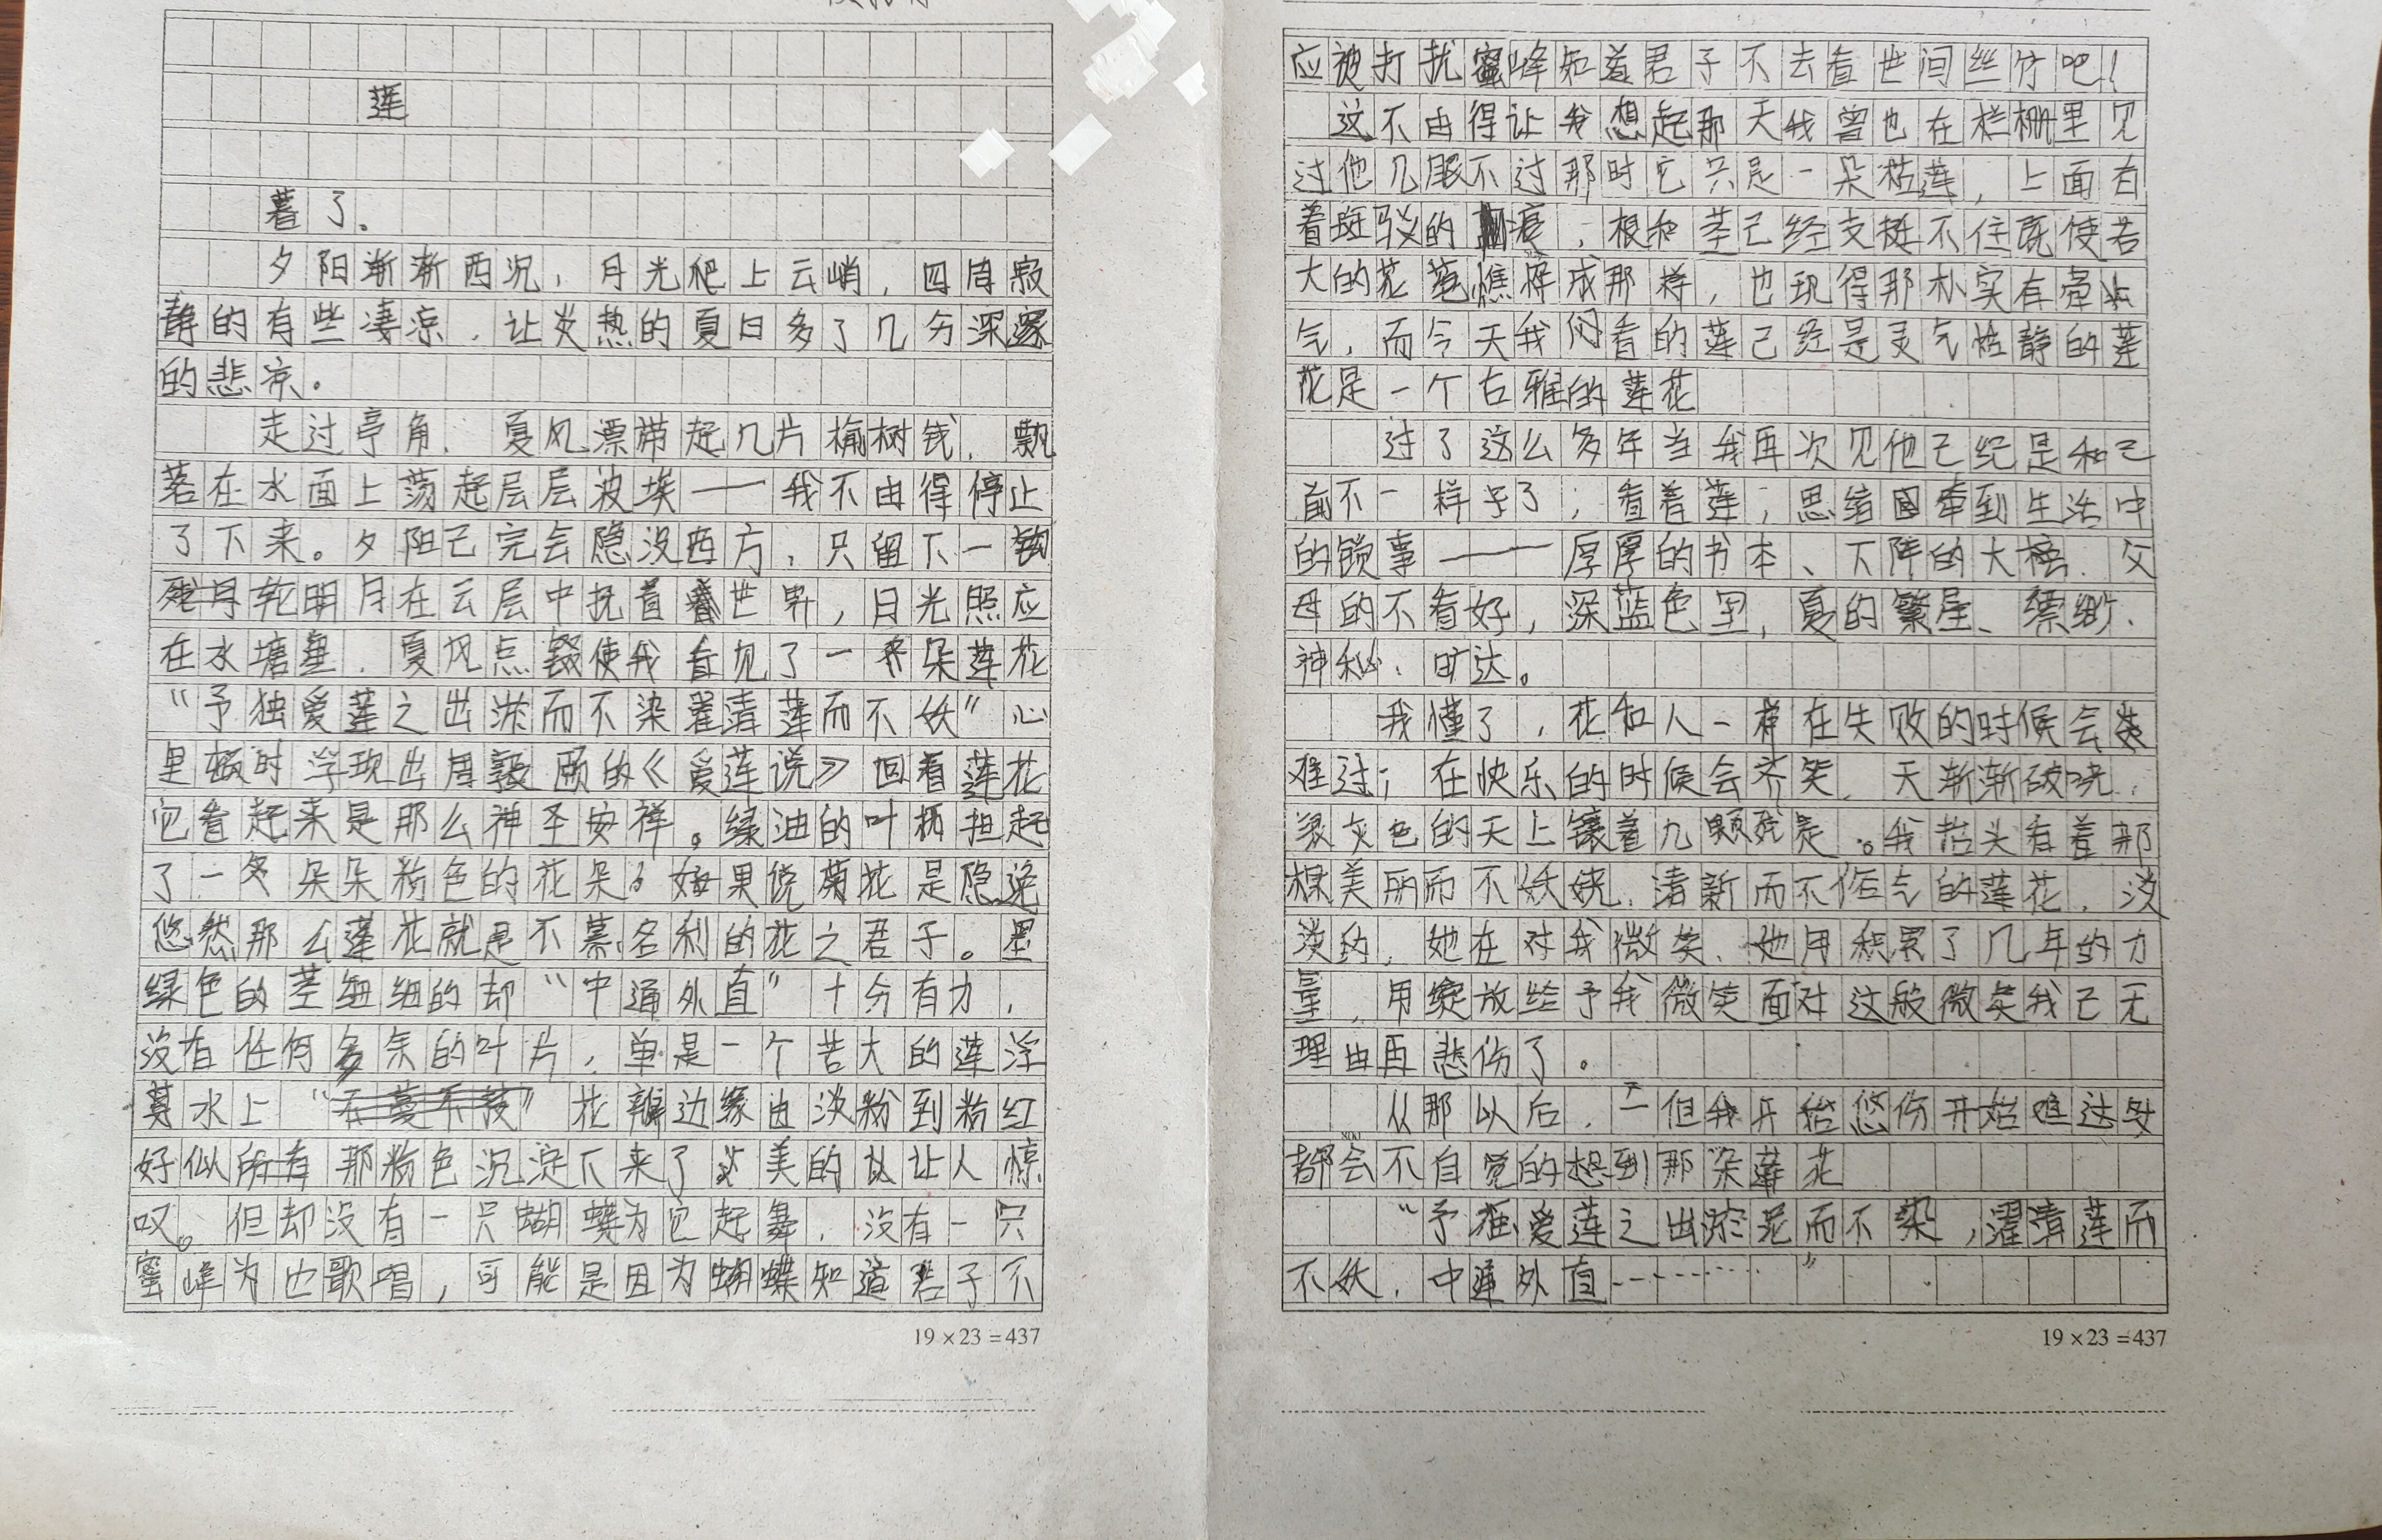 莲
暮了。
夕阳渐渐西沉，月光爬上云峭，四周寂
静的有些凄凉，让炎热的夏日多了几分深邃
的悲凉。
走过亭角，夏风漂带起几片榆树钱，飘
落在水面上荡起层层波埃——我不由得停止
了下来。夕阳已完会隐没西方，只留下一
轮明月在云层中抚着世界，月光照应
在水塘里，夏风点缀使我看见了一朵莲花
“予独爱莲之出淤而不染濯清莲而不妖”心
里顿时浮现出周敦颐的《爱莲说》回看莲花
它看起来是那么神圣安祥。绿油的叶柄担起
了一朵朵粉色的花朵。如果说菊花是隐逸
悠然那么莲花就是不慕名利的花之君子。墨
绿色的茎细细的却“中通外直”十分有力，
没有任何多余的叶片，单是一个若大的莲浮
其水上“不蔓不枝”花瓣边缘由淡粉到粉红
好似所有那粉色沉淀下来了美的以让人惊
叹。但却没有一只蝴蝶为它起舞，没有一只
蜜蜂为也歌唱，可能是因为蝴蝶知道君子不
应被打扰蜜蜂知道君子不去看世间丝竹吧！
这不由得让我想起那天我曾也在栏栅里见
过他几眼不过那时它只是一朵枯莲，上面有
着斑驳的痕，根和茎已经支挺不住既使若
大的花苞憔悴成那样，也现得那朴实有
气，而今天我闷看的莲已经是灵气恬静的莲
花是一个古雅的莲花
过了这么多年当我再次见他已经是和已
前不一样子了；看着莲；思绪牵到生活中
的锁事——厚厚的书本、下阵的大榜、父
母的不看好，深蓝色里，夏的繁星、缥缈、
神秘、旷达。
我懂了，花和人一样在失败的时候会
难过；在快乐的时候会齐笑，天渐渐破晓，
灰色的天上镶着几颗残星。我抬头看着那
棵美丽而不妖娆，清新而不俗气的莲花，淡
淡的，她在对我微笑、她用积累了几年的力
量，用绽放给予我微笑面对这般微笑我已无
理由再悲伤了。
从那以后，一但我开始悠伤开始难过时
都会不自觉的想到那朵莲花
“予独爱莲之出淤泥而不染，濯清莲而
不妖，中通外直………”
19×23=437
19×23=437